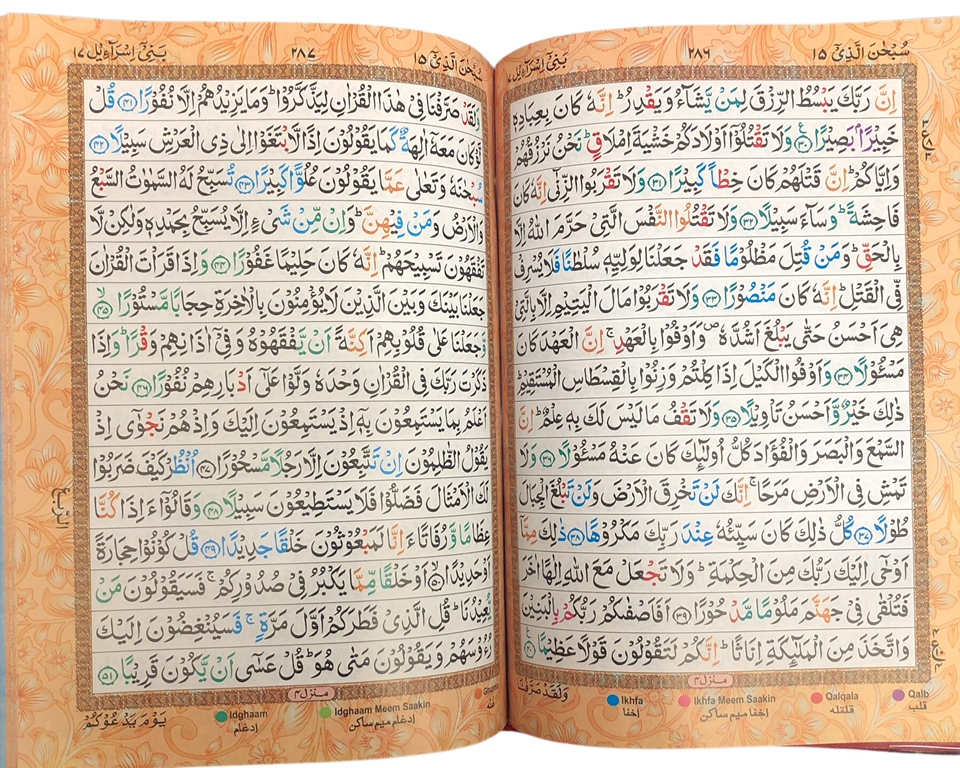 سُبْحٰنَ الَّذِیْۤ ۱۵ ۲۸۶ بَنِیْۤ اِسْرَآءِیْل ۱۷
اِنَّ رَبَّكَ یَبْسُطُ الرِّزْقَ لِمَنْ یَّشَآءُ وَیَقْدِرُ ؕ اِنَّهٗ كَانَ بِعِبَادِهٖ
خَبِیْرًۢا بَصِیْرًا ﴿۳۰﴾ وَلَا تَقْتُلُوْۤا اَوْلَادَكُمْ خَشْیَةَ اِمْلَاقٍ ؕ نَحْنُ نَرْزُقُهُمْ
وَاِیَّاكُمْ ؕ اِنَّ قَتْلَهُمْ كَانَ خِطْاً كَبِیْرًا ﴿۳۱﴾ وَلَا تَقْرَبُوا الزِّنٰۤی اِنَّهٗ كَانَ
فَاحِشَةً ؕ وَسَآءَ سَبِیْلًا ﴿۳۲﴾ وَلَا تَقْتُلُوا النَّفْسَ الَّتِیْ حَرَّمَ اللّٰهُ اِلَّا
بِالْحَقِّ ؕ وَمَنْ قُتِلَ مَظْلُوْمًا فَقَدْ جَعَلْنَا لِوَلِیِّهٖ سُلْطٰنًا فَلَا یُسْرِفْ
فِّی الْقَتْلِ ؕ اِنَّهٗ كَانَ مَنْصُوْرًا ﴿۳۳﴾ وَلَا تَقْرَبُوْا مَالَ الْیَتِیْمِ اِلَّا بِالَّتِیْ
هِیَ اَحْسَنُ حَتّٰی یَبْلُغَ اَشُدَّهٗ ۪ وَاَوْفُوْا بِالْعَهْدِ ۚ اِنَّ الْعَهْدَ كَانَ
مَسْـُٔوْلًا ﴿۳۴﴾ وَاَوْفُوا الْكَیْلَ اِذَا كِلْتُمْ وَزِنُوْا بِالْقِسْطَاسِ الْمُسْتَقِیْمِ ؕ
ذٰلِكَ خَیْرٌ وَّاَحْسَنُ تَاْوِیْلًا ﴿۳۵﴾ وَلَا تَقْفُ مَا لَیْسَ لَكَ بِهٖ عِلْمٌ ؕ اِنَّ
السَّمْعَ وَالْبَصَرَ وَالْفُؤَادَ كُلُّ اُولٰٓئِكَ كَانَ عَنْهُ مَسْـُٔوْلًا ﴿۳۶﴾ وَلَا
تَمْشِ فِی الْاَرْضِ مَرَحًا ۚ اِنَّكَ لَنْ تَخْرِقَ الْاَرْضَ وَلَنْ تَبْلُغَ الْجِبَالَ
طُوْلًا ﴿۳۷﴾ كُلُّ ذٰلِكَ كَانَ سَیِّئُهٗ عِنْدَ رَبِّكَ مَكْرُوْهًا ﴿۳۸﴾ ذٰلِكَ مِمَّاۤ
اَوْحٰۤی اِلَیْكَ رَبُّكَ مِنَ الْحِكْمَةِ ؕ وَلَا تَجْعَلْ مَعَ اللّٰهِ اِلٰهًا اٰخَرَ
فَتُلْقٰی فِیْ جَهَنَّمَ مَلُوْمًا مَّدْحُوْرًا ﴿۳۹﴾ اَفَاَصْفٰىكُمْ رَبُّكُمْ بِالْبَنِیْنَ
وَاتَّخَذَ مِنَ الْمَلٰٓئِكَةِ اِنَاثًا ؕ اِنَّكُمْ لَتَقُوْلُوْنَ قَوْلًا عَظِیْمًا ﴿۴۰﴾
منزل ۴
وَلَقَدْ صَرَّفْنَا
Ikhfa Ikhfa Meem Saakin Qalqala Qalb
اخفا اخفا میم ساکن قلقله قلب
سُبْحٰنَ الَّذِیْۤ ۱۵ ۲۸۷ بَنِیْۤ اِسْرَآءِیْل ۱۷
وَلَقَدْ صَرَّفْنَا فِیْ هٰذَا الْقُرْاٰنِ لِیَذَّكَّرُوْا ؕ وَمَا یَزِیْدُهُمْ اِلَّا نُفُوْرًا ﴿۴۱﴾ قُلْ
لَّوْ كَانَ مَعَهٗۤ اٰلِهَةٌ كَمَا یَقُوْلُوْنَ اِذًا لَّابْتَغَوْا اِلٰی ذِی الْعَرْشِ سَبِیْلًا ﴿۴۲﴾
سُبْحٰنَهٗ وَتَعٰلٰی عَمَّا یَقُوْلُوْنَ عُلُوًّا كَبِیْرًا ﴿۴۳﴾ تُسَبِّحُ لَهُ السَّمٰوٰتُ السَّبْعُ
وَالْاَرْضُ وَمَنْ فِیْهِنَّ ؕ وَاِنْ مِّنْ شَیْءٍ اِلَّا یُسَبِّحُ بِحَمْدِهٖ وَلٰكِنْ لَّا
تَفْقَهُوْنَ تَسْبِیْحَهُمْ ؕ اِنَّهٗ كَانَ حَلِیْمًا غَفُوْرًا ﴿۴۴﴾ وَاِذَا قَرَاْتَ الْقُرْاٰنَ
جَعَلْنَا بَیْنَكَ وَبَیْنَ الَّذِیْنَ لَا یُؤْمِنُوْنَ بِالْاٰخِرَةِ حِجَابًا مَّسْتُوْرًا ﴿۴۵﴾
وَّجَعَلْنَا عَلٰی قُلُوْبِهِمْ اَكِنَّةً اَنْ یَّفْقَهُوْهُ وَفِیْۤ اٰذَانِهِمْ وَقْرًا ؕ وَاِذَا
ذَكَرْتَ رَبَّكَ فِی الْقُرْاٰنِ وَحْدَهٗ وَلَّوْا عَلٰۤی اَدْبَارِهِمْ نُفُوْرًا ﴿۴۶﴾ نَحْنُ
اَعْلَمُ بِمَا یَسْتَمِعُوْنَ بِهٖۤ اِذْ یَسْتَمِعُوْنَ اِلَیْكَ وَاِذْ هُمْ نَجْوٰۤی اِذْ
یَقُوْلُ الظّٰلِمُوْنَ اِنْ تَتَّبِعُوْنَ اِلَّا رَجُلًا مَّسْحُوْرًا ﴿۴۷﴾ اُنْظُرْ كَیْفَ ضَرَبُوْا
لَكَ الْاَمْثَالَ فَضَلُّوْا فَلَا یَسْتَطِیْعُوْنَ سَبِیْلًا ﴿۴۸﴾ وَقَالُوْۤا ءَاِذَا كُنَّا
عِظَامًا وَّرُفَاتًا ءَاِنَّا لَمَبْعُوْثُوْنَ خَلْقًا جَدِیْدًا ﴿۴۹﴾ قُلْ كُوْنُوْا حِجَارَةً
اَوْ حَدِیْدًا ﴿۵۰﴾ اَوْ خَلْقًا مِّمَّا یَكْبُرُ فِیْ صُدُوْرِكُمْ ۚ فَسَیَقُوْلُوْنَ مَنْ
یُّعِیْدُنَا ؕ قُلِ الَّذِیْ فَطَرَكُمْ اَوَّلَ مَرَّةٍ ۚ فَسَیُنْغِضُوْنَ اِلَیْكَ
رُءُوْسَهُمْ وَیَقُوْلُوْنَ مَتٰی هُوَ ؕ قُلْ عَسٰۤی اَنْ یَّكُوْنَ قَرِیْبًا ﴿۵۱﴾
منزل ۴
یَوْمَ یَدْعُوْكُمْ
Idghaam Idghaam Meem Saakin Ghunna
ادغام ادغام میم ساکن غنه